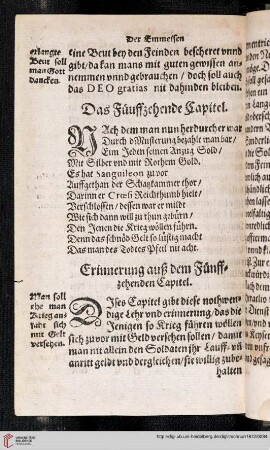 Der Emmessen
erlangte
Beut soll
man Gott
dancken.
eine Beut bey den Feinden bescheret vnnd
gibt / da kan mans mit guten gewissen an-
nemmen vnnd gebrauchen / doch soll auch
das DEO gratias nit dahinden bleiben.
Das Füuffzehende Capitel.
NAch dem man nun herdurch er war
Durch d Musterung bezahlt man bar /
Eim Jeden seinen Anzug Sold /
Mit Silber vnd mit Rothem Gold.
Es hat Sanguileon zu vor
Auffgethan der Schatzkammer thor /
Darinn er Crœsi Reichthumb hielt /
Verschlossen / dessen war er milt
Wie sich dann will zu thun gebürn /
Den Jenen die Krieg wöllen führn.
Denn das schnöd Gelt so lüstig macht
Das man des Todtes Pfeil nit acht.
Erinnerung auß dem Fünff-
zehenden Capitel.
Man soll
ehe man
Krieg an-
facht sich
mit Gelt
versehen.
DIses Capitel gibt diese nothwen-
dige Lehr vnd erinnerung / das die
Jenigen so Krieg führen wöllen
sich zuvor mit Geld versehen sollen / damit
man nit allein den Soldaten jhr Lauff- vñ
anritt geldt vnd dergleichen / sie willig zube-
halten